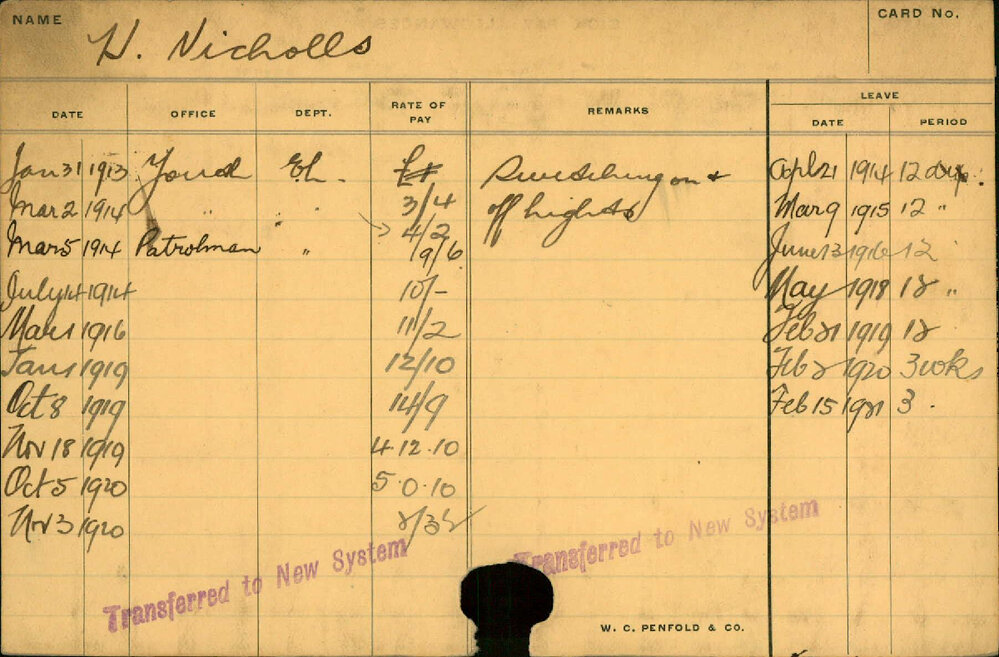 NAME
H. Nicholls
CARD No.
DATE OFFICE DEPT. RATE OF PAY REMARKS LEAVE
DATE PERIOD
Jan 31 1913 El. Switching on & Apl 21 1914 12 days.
Mar 2 1914 " " 3/4 off lights Mar 9 1915 12 "
Mar 5 1914 Patrolman " 4/2 June 13 1916 12
9/6
July 14 1914 10/- May 1918 12 "
Mar 1 1916 11/2 Feb 21 1919 12
Jan 1 1919 12/10 Feb 2 1920 3 wks
Oct 8 1919 14/9 Feb 15 1921 3 .
Nov 18 1919 4.12.10
Oct 5 1920 5.0.10
Nov 3 1920
Transferred to New System
Transferred to New System
W. C. PENFOLD & CO.